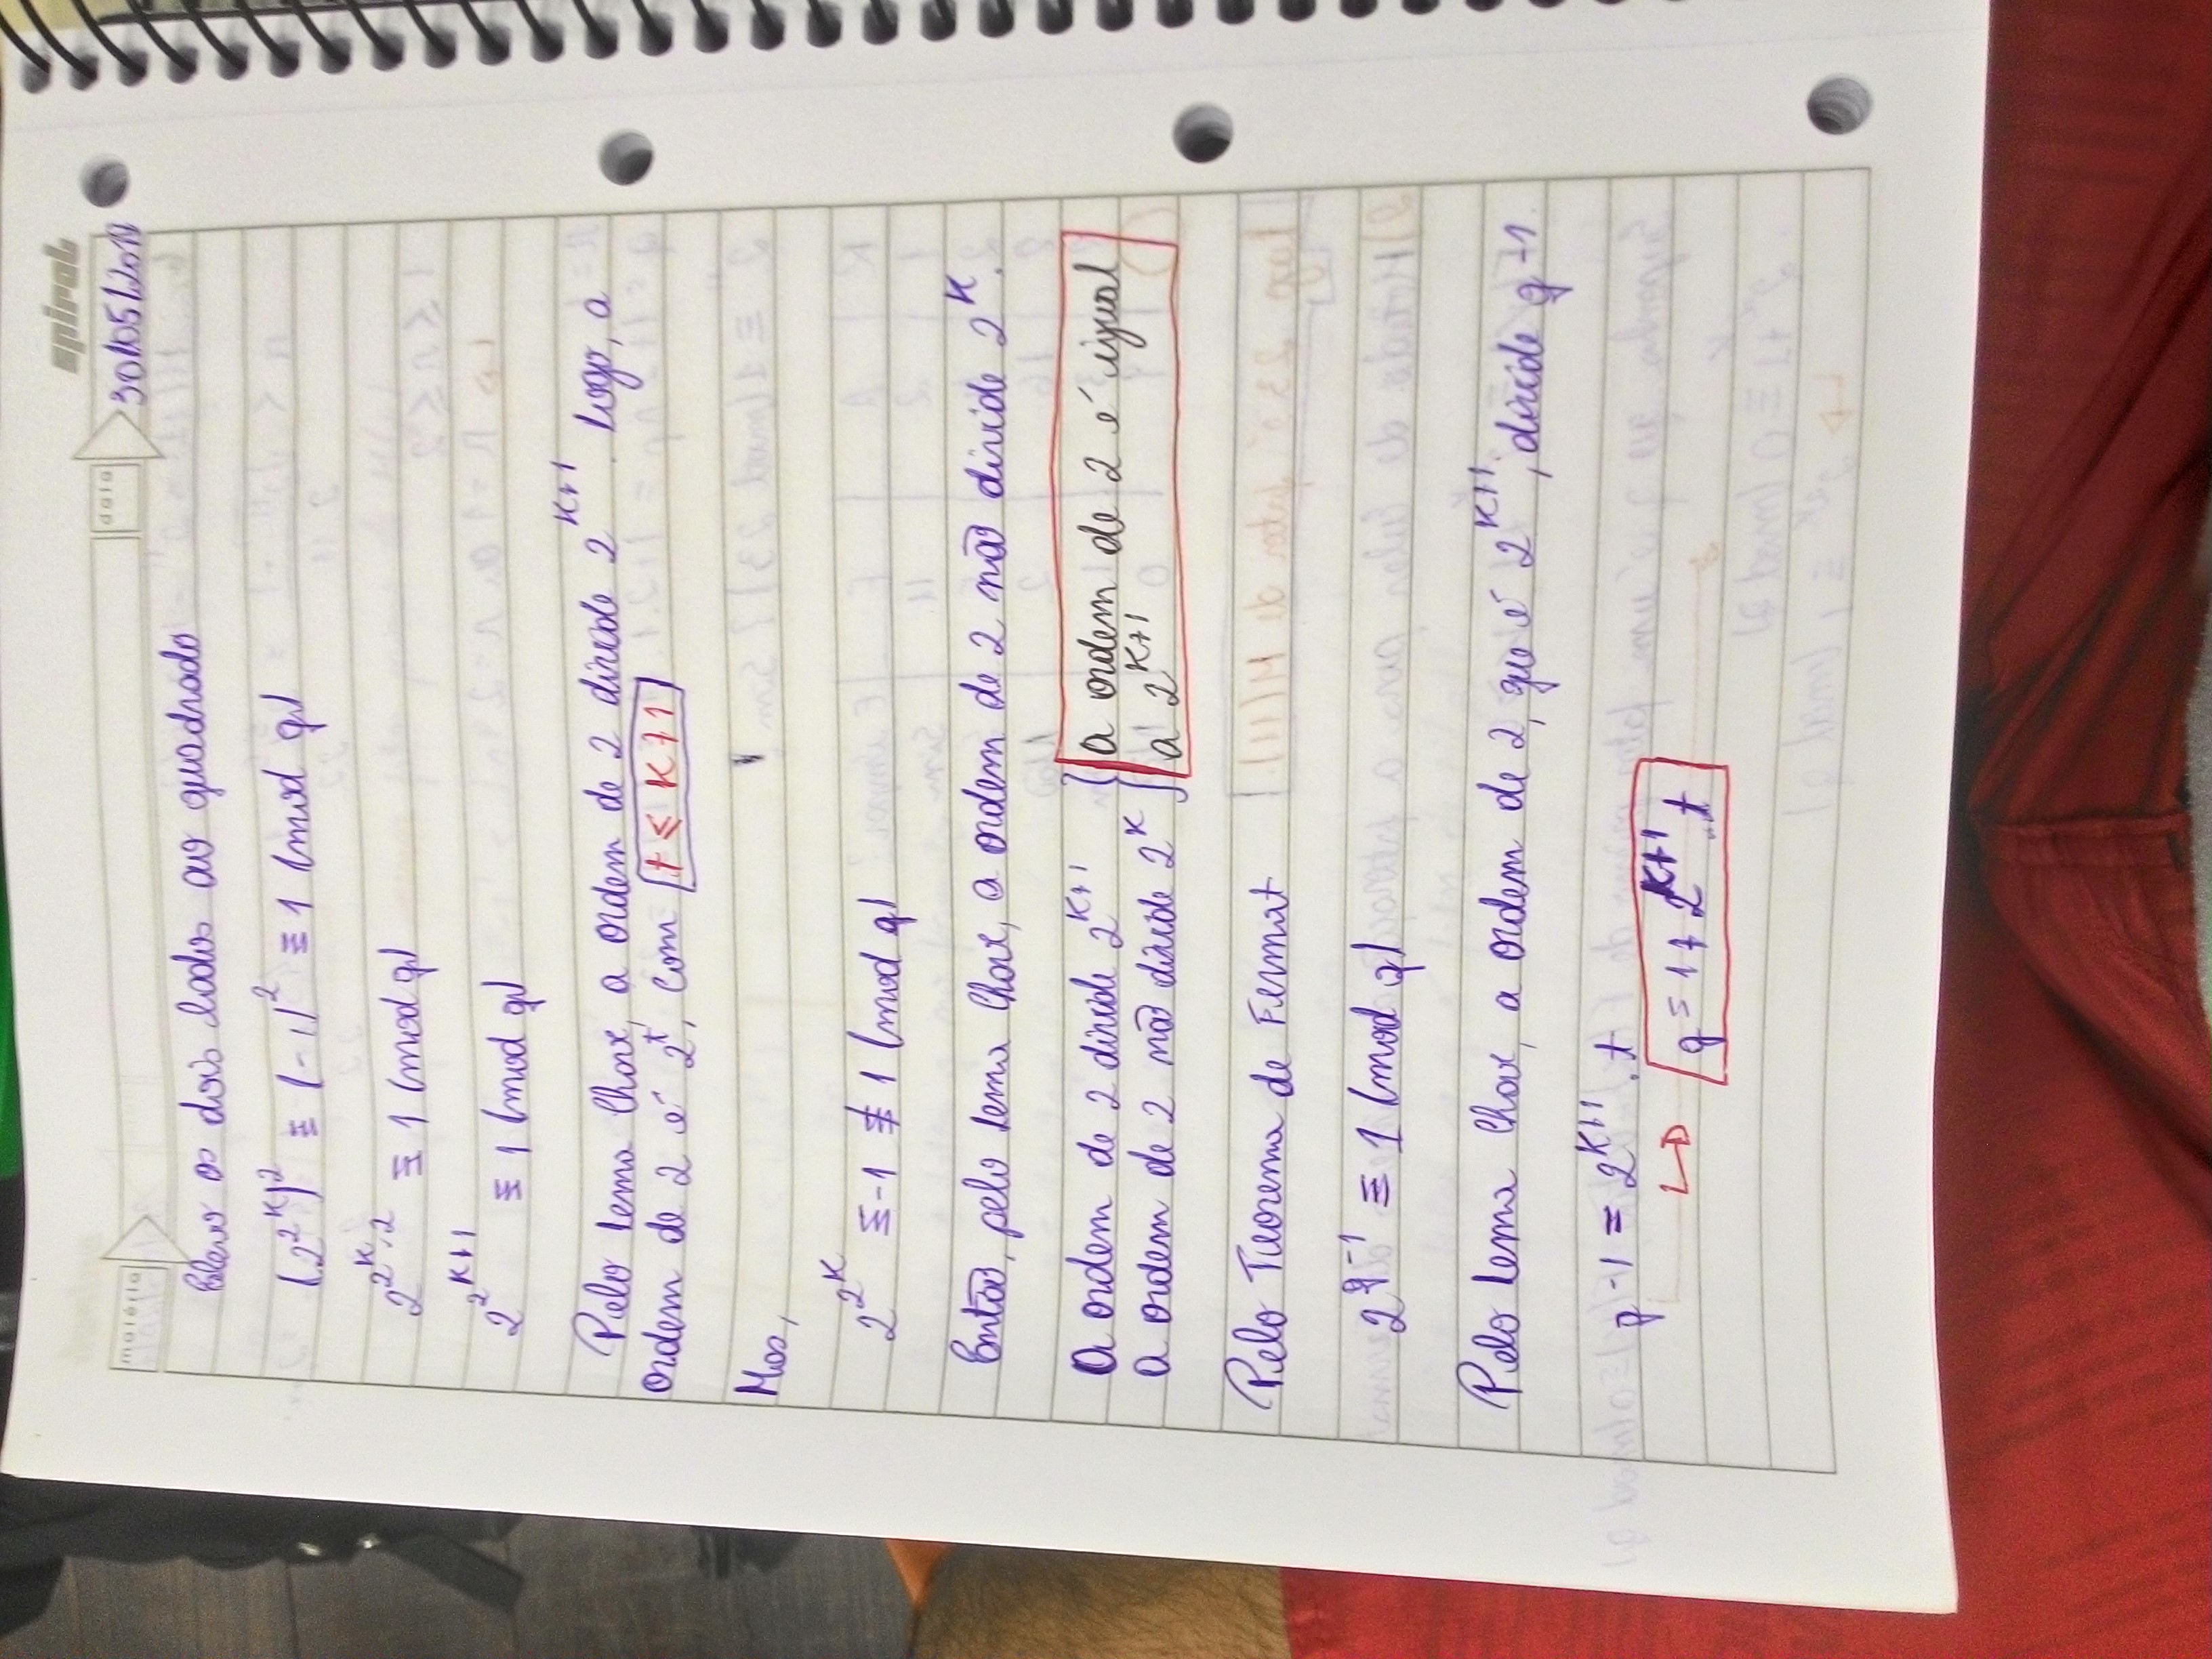 spiral
matéria
data
30/05/2018
Elevo os dois lados ao quadrado
(2^2^K)^2 ≡ (-1)^2 ≡ 1 (mod q)
2^2^K.2 ≡ 1 (mod q)
2^2^K+1 ≡ 1 (mod q)
Pelo Lema Chave, a ordem de 2 divide 2^K+1. Logo, a
ordem de 2 é 2^t, com t ≤ K+1
Mas,
2^2^K ≡ -1 ≢ 1 (mod q)
Então, pelo Lema Chave, a ordem de 2 não divide 2^K.
A ordem de 2 divide 2^K+1 } a ordem de 2 é igual
A ordem de 2 não divide 2^K } a 2^K+1
Pelo Teorema de Fermat
2^q-1 ≡ 1 (mod q)
Pelo Lema Chave, a ordem de 2, que é 2^K+1, divide q-1.
q-1 = 2^K+1 . t
q = 1 + 2^K+1 . t